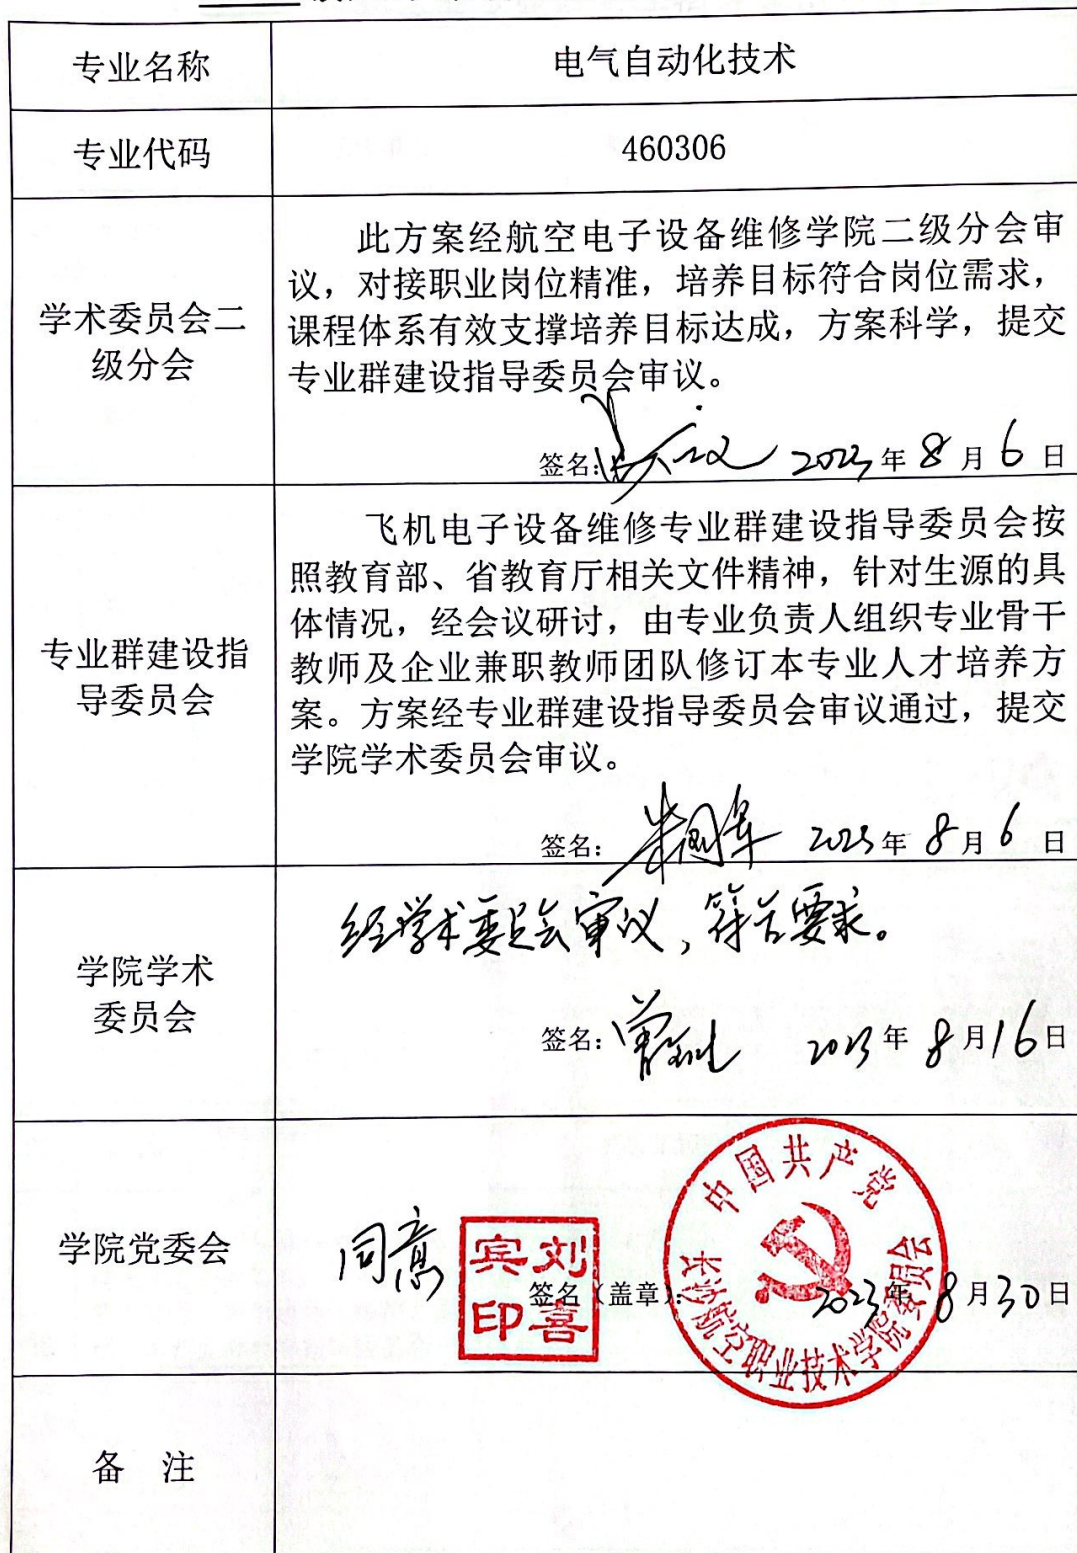 专业名称
电气自动化技术
专业代码
460306
学术委员会二
级分会
此方案经航空电子设备维修学院二级分会审
议，对接职业岗位精准，培养目标符合岗位需求，
课程体系有效支撑培养目标达成，方案科学，提交
专业群建设指导委员会审议。
签名: 2023年8月6日
专业群建设指
导委员会
飞机电子设备维修专业群建设指导委员会按
照教育部、省教育厅相关文件精神，针对生源的具
体情况，经会议研讨，由专业负责人组织专业骨干
教师及企业兼职教师团队修订本专业人才培养方
案。方案经专业群建设指导委员会审议通过，提交
学院学术委员会审议。
签名: 2023年8月6日
学院学术
委员会
经学术委员会审议，符合要求。
签名: 2023年8月16日
学院党委会
同意
刘喜宾印
中国共产党
长沙航空职业技术学院委员会
签名（盖章）: 2023年8月30日
备 注